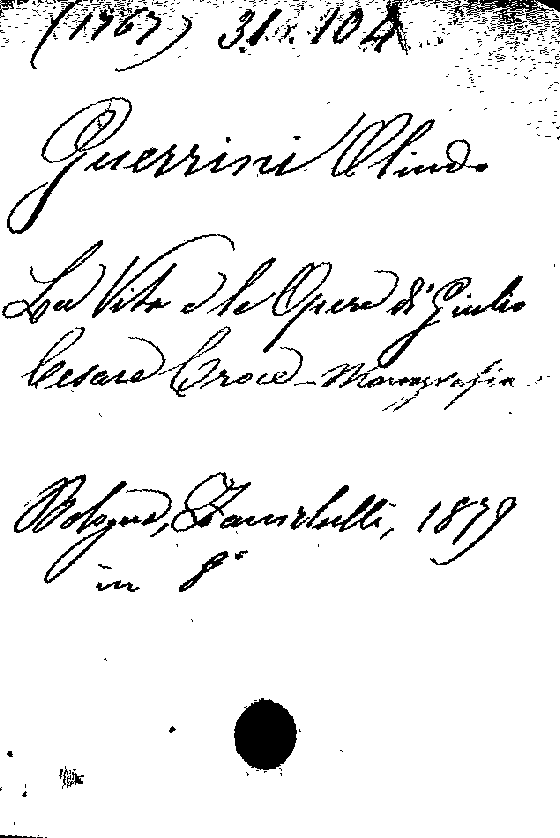 (1767) 31. 104
Guerrini Olindo
La Vita e le Opere di Giulio
Cesare Croce - Monografia
Bologna, Zanichelli, 1879
in 8°